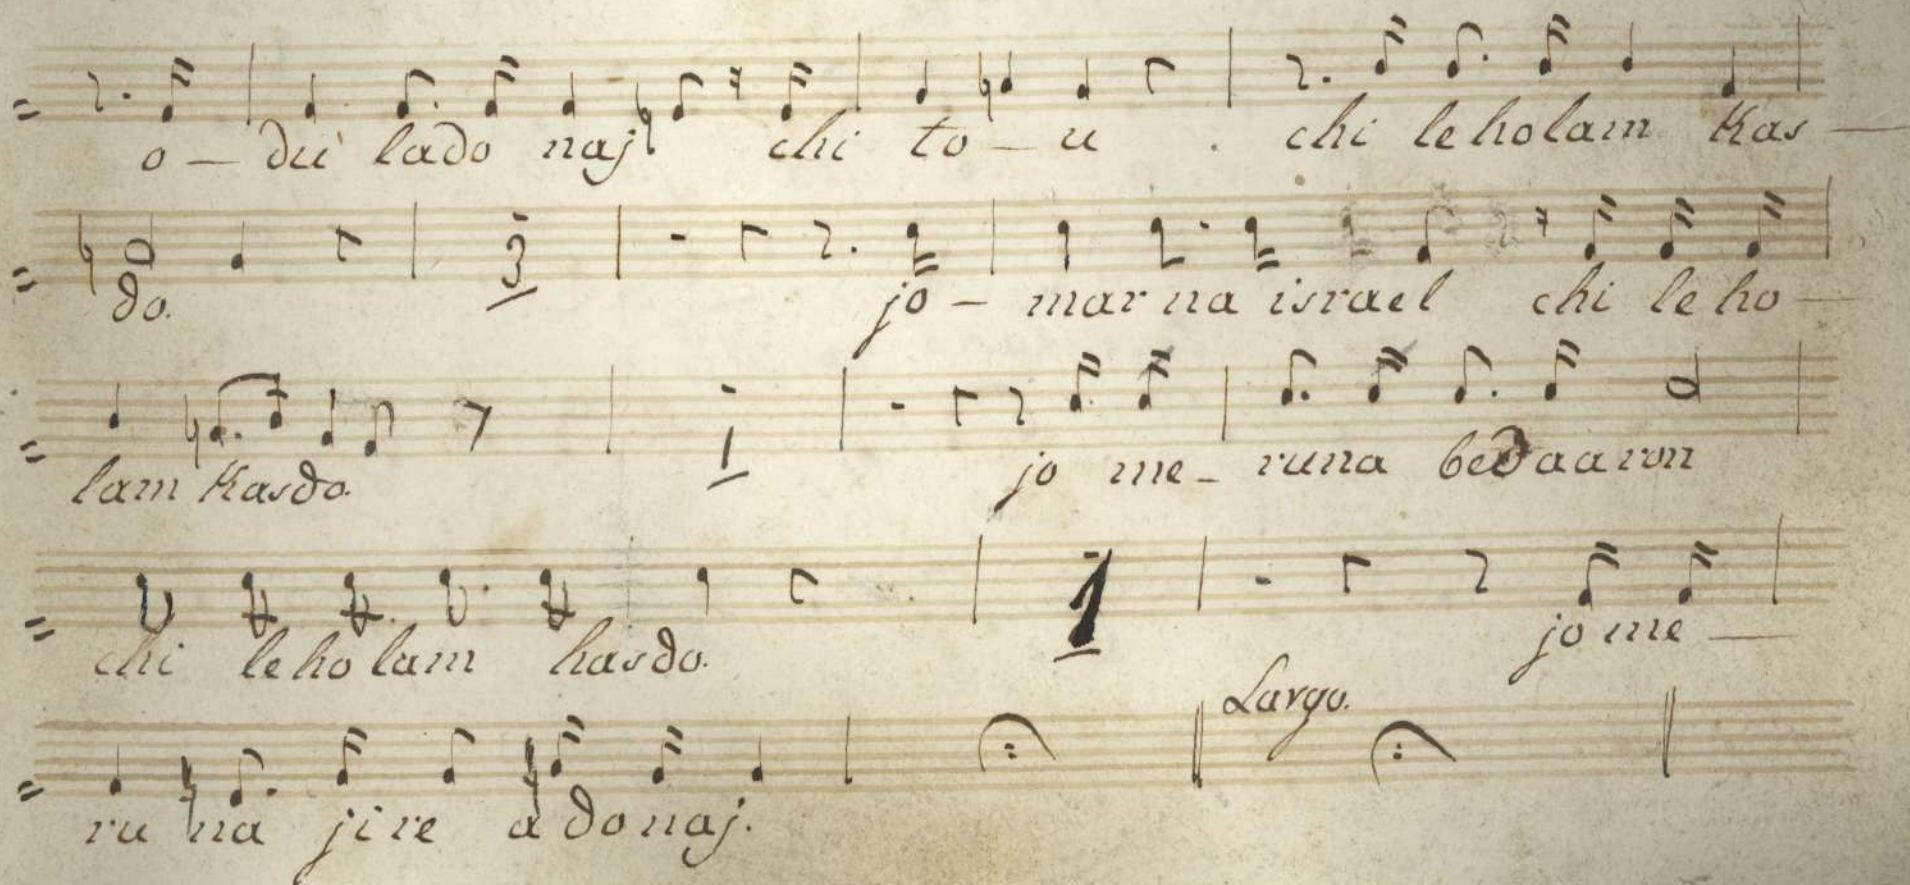 o - dui lado naj chi to - u . chi le holam Kas -
3
do. jo - mar na israel chi le ho -
1
lam Kasdo. jo me - runa bedaaron
1
chi leholam hasdo. jo me -
Largo.
ru na jire adonaj.